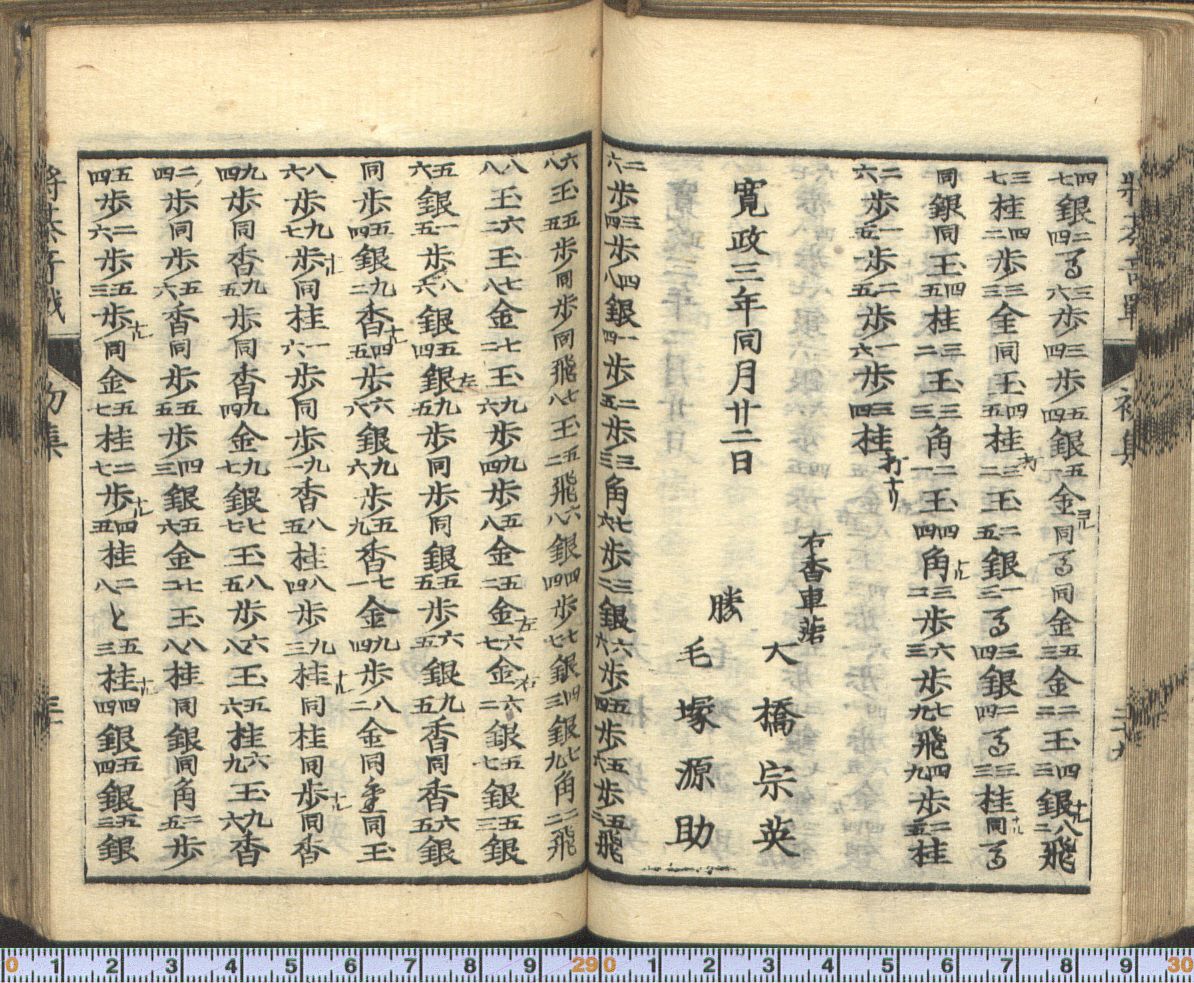 四七銀二四馬三六歩三四歩五四銀五金ヨル同馬同金五三金二二玉四三銀ナル八二飛
三七桂四二歩三三全同玉四五桂打三二玉二五銀一三馬三四銀二四馬三三桂ナル同馬
同銀同玉四五桂三二玉三三角二一玉四四角ナル三二歩六三歩七九飛四九歩二五桂
二六歩一五歩二五歩一六歩三四桂打ナリ
右香車落
大橋宗英
勝毛塚源助
寛政三年同月廿二日
二六歩三四歩四八銀一四歩二五歩三三角七六歩三二銀六六歩五四歩五六歩五二飛
六八玉五五歩同歩同飛七八玉五二飛六八銀四四歩七七銀四三銀七九角二二飛
八八玉六二玉七八金七二玉九六歩九四歩五八金五二金左六七金右六二銀五七銀五三銀
五六銀一五歩八六銀五四銀左九五歩同歩同銀五五歩六五銀九五香同香六五銀
同歩五四銀九二香ナル四五歩六八銀九六歩五九香七一金九四歩八二金同圭同玉
八六歩九七歩ナル同桂一六歩同歩九一香八五桂八四歩九三桂ナル同桂同歩ナル同香
九四歩同香九五歩同香九四金九七銀七七玉八五歩六八玉五六桂六九玉九六香
二四歩同歩五六香同歩五五歩四三銀五六金七二玉八八桂同銀同角二五歩
五四歩二六歩五三歩ナル同金五七桂二七歩ナル四五桂二八と五三桂ナル四四銀五四銀五三銀